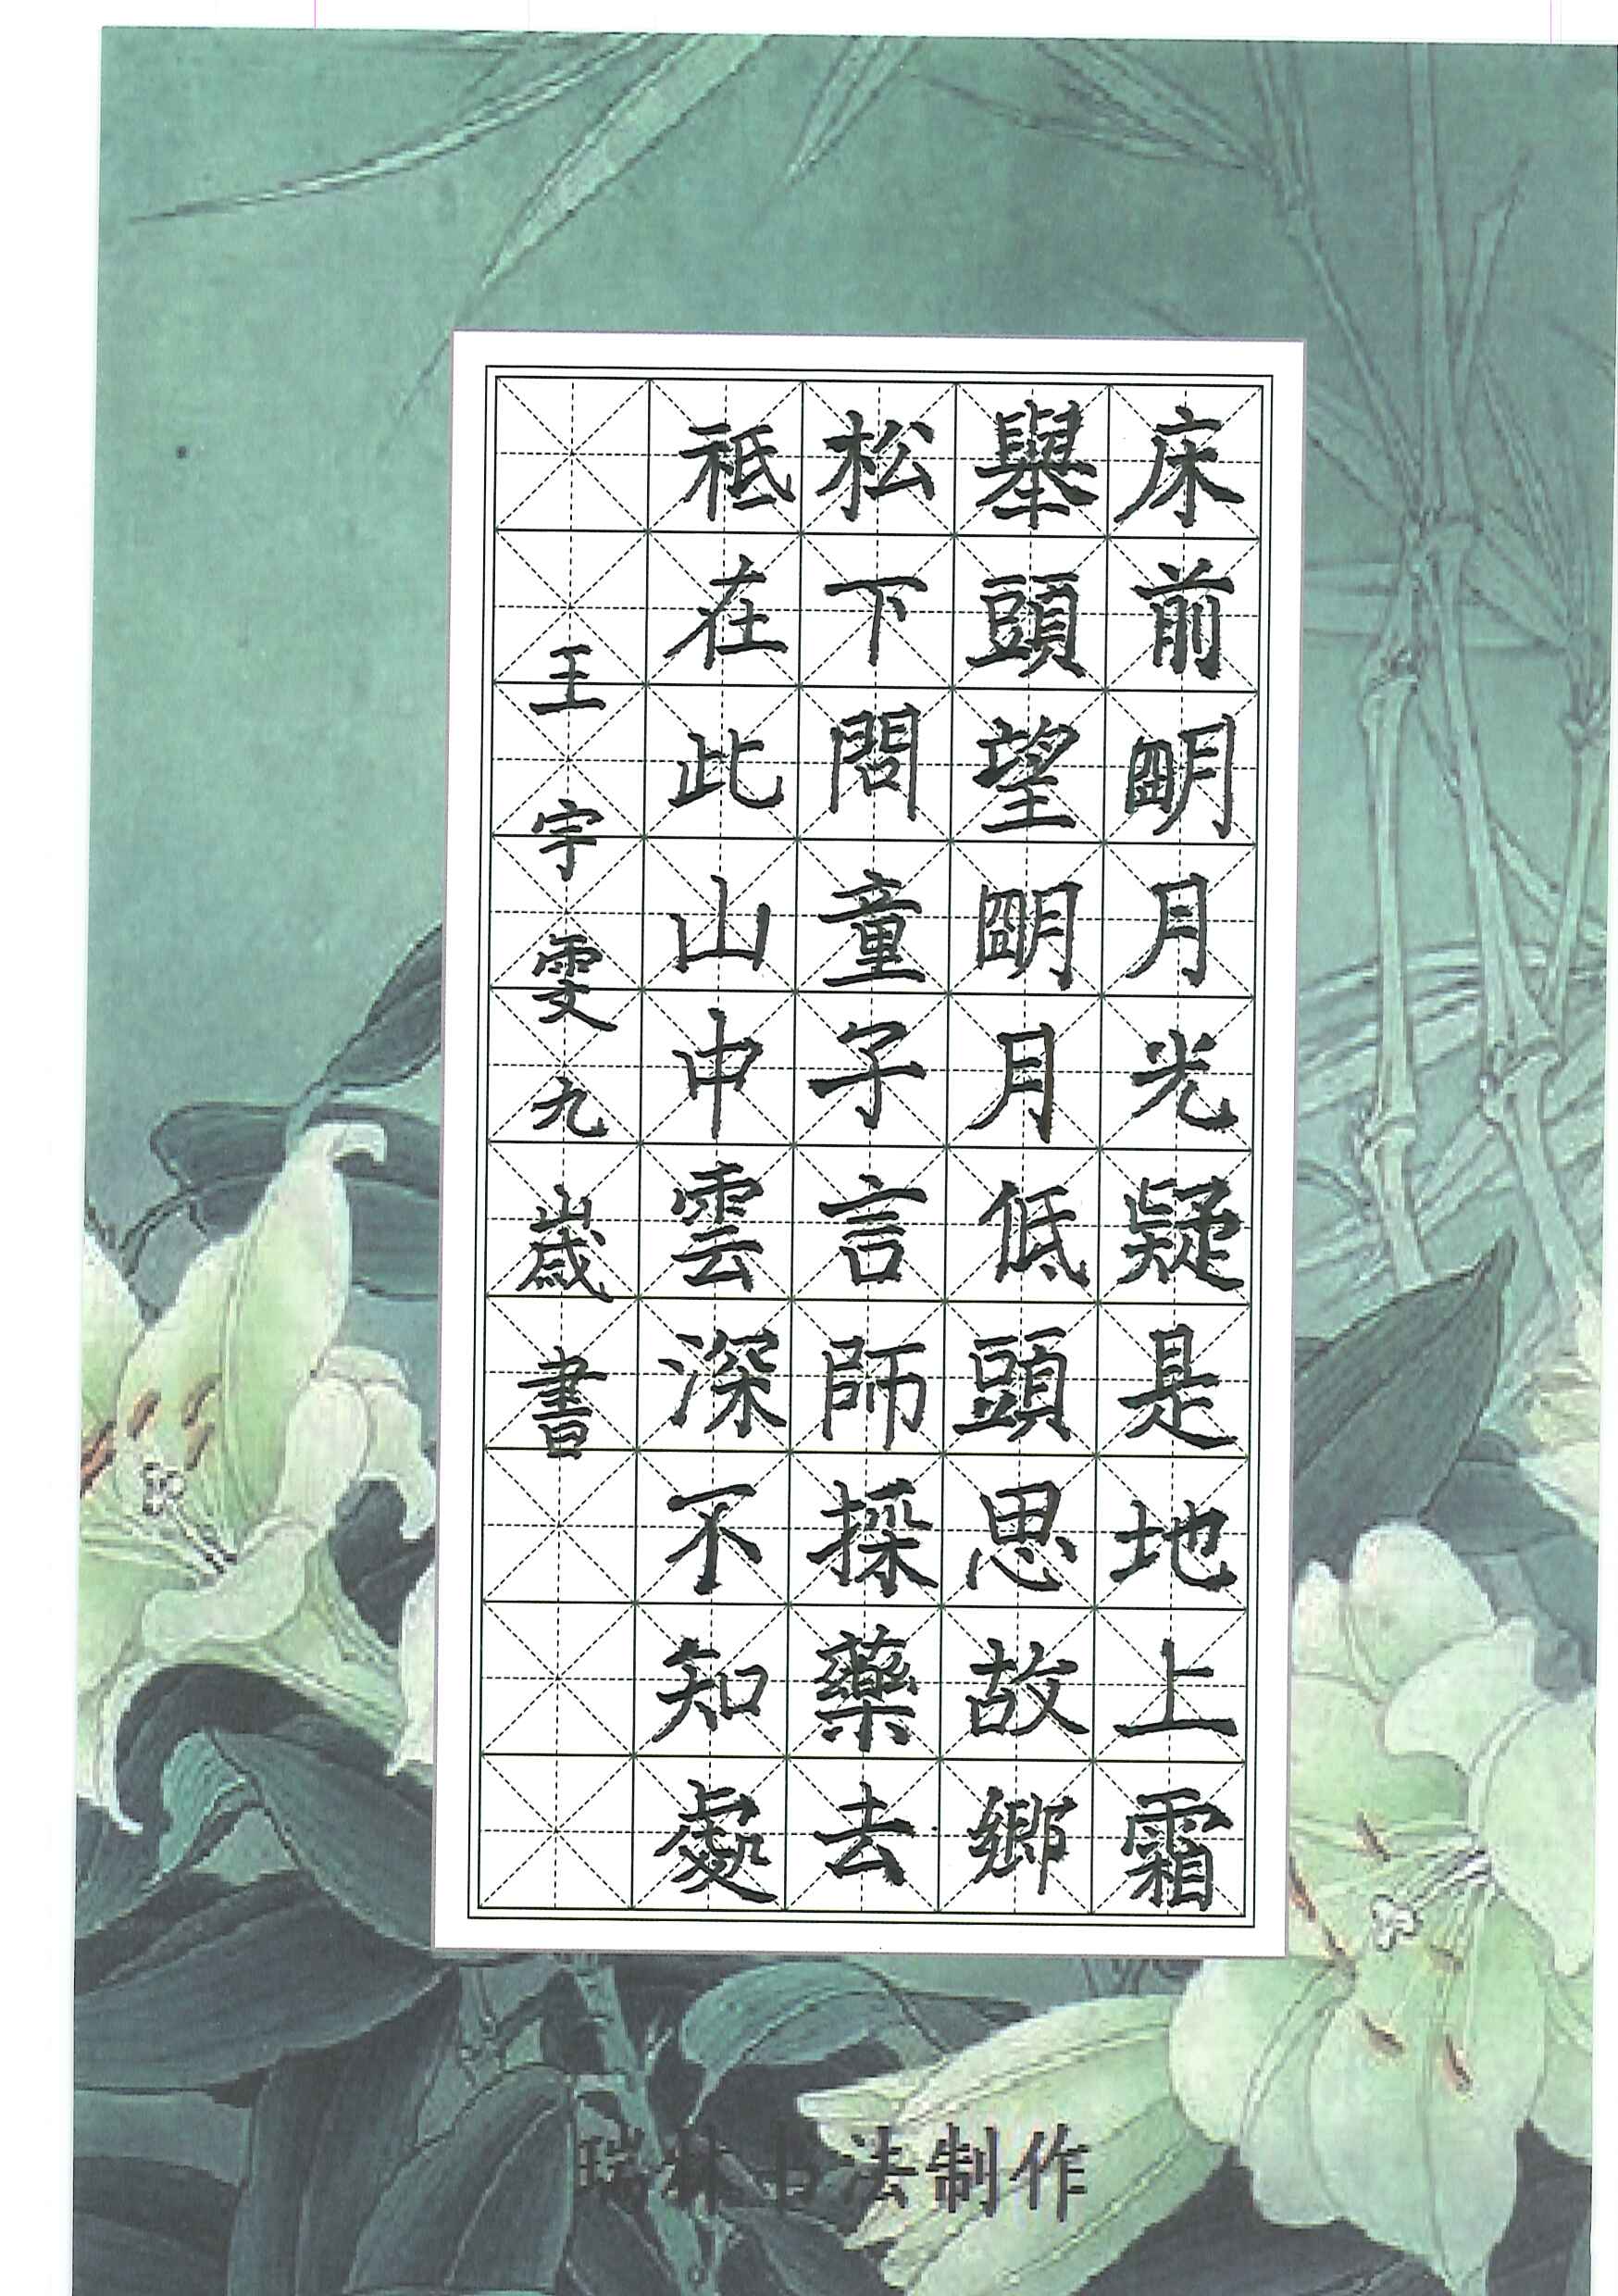 床前明月光疑是地上霜
舉頭望明月低頭思故鄉
松下問童子言師採藥去
祗在此山中雲深不知處
王宇雯九歲書
瑞林书法制作